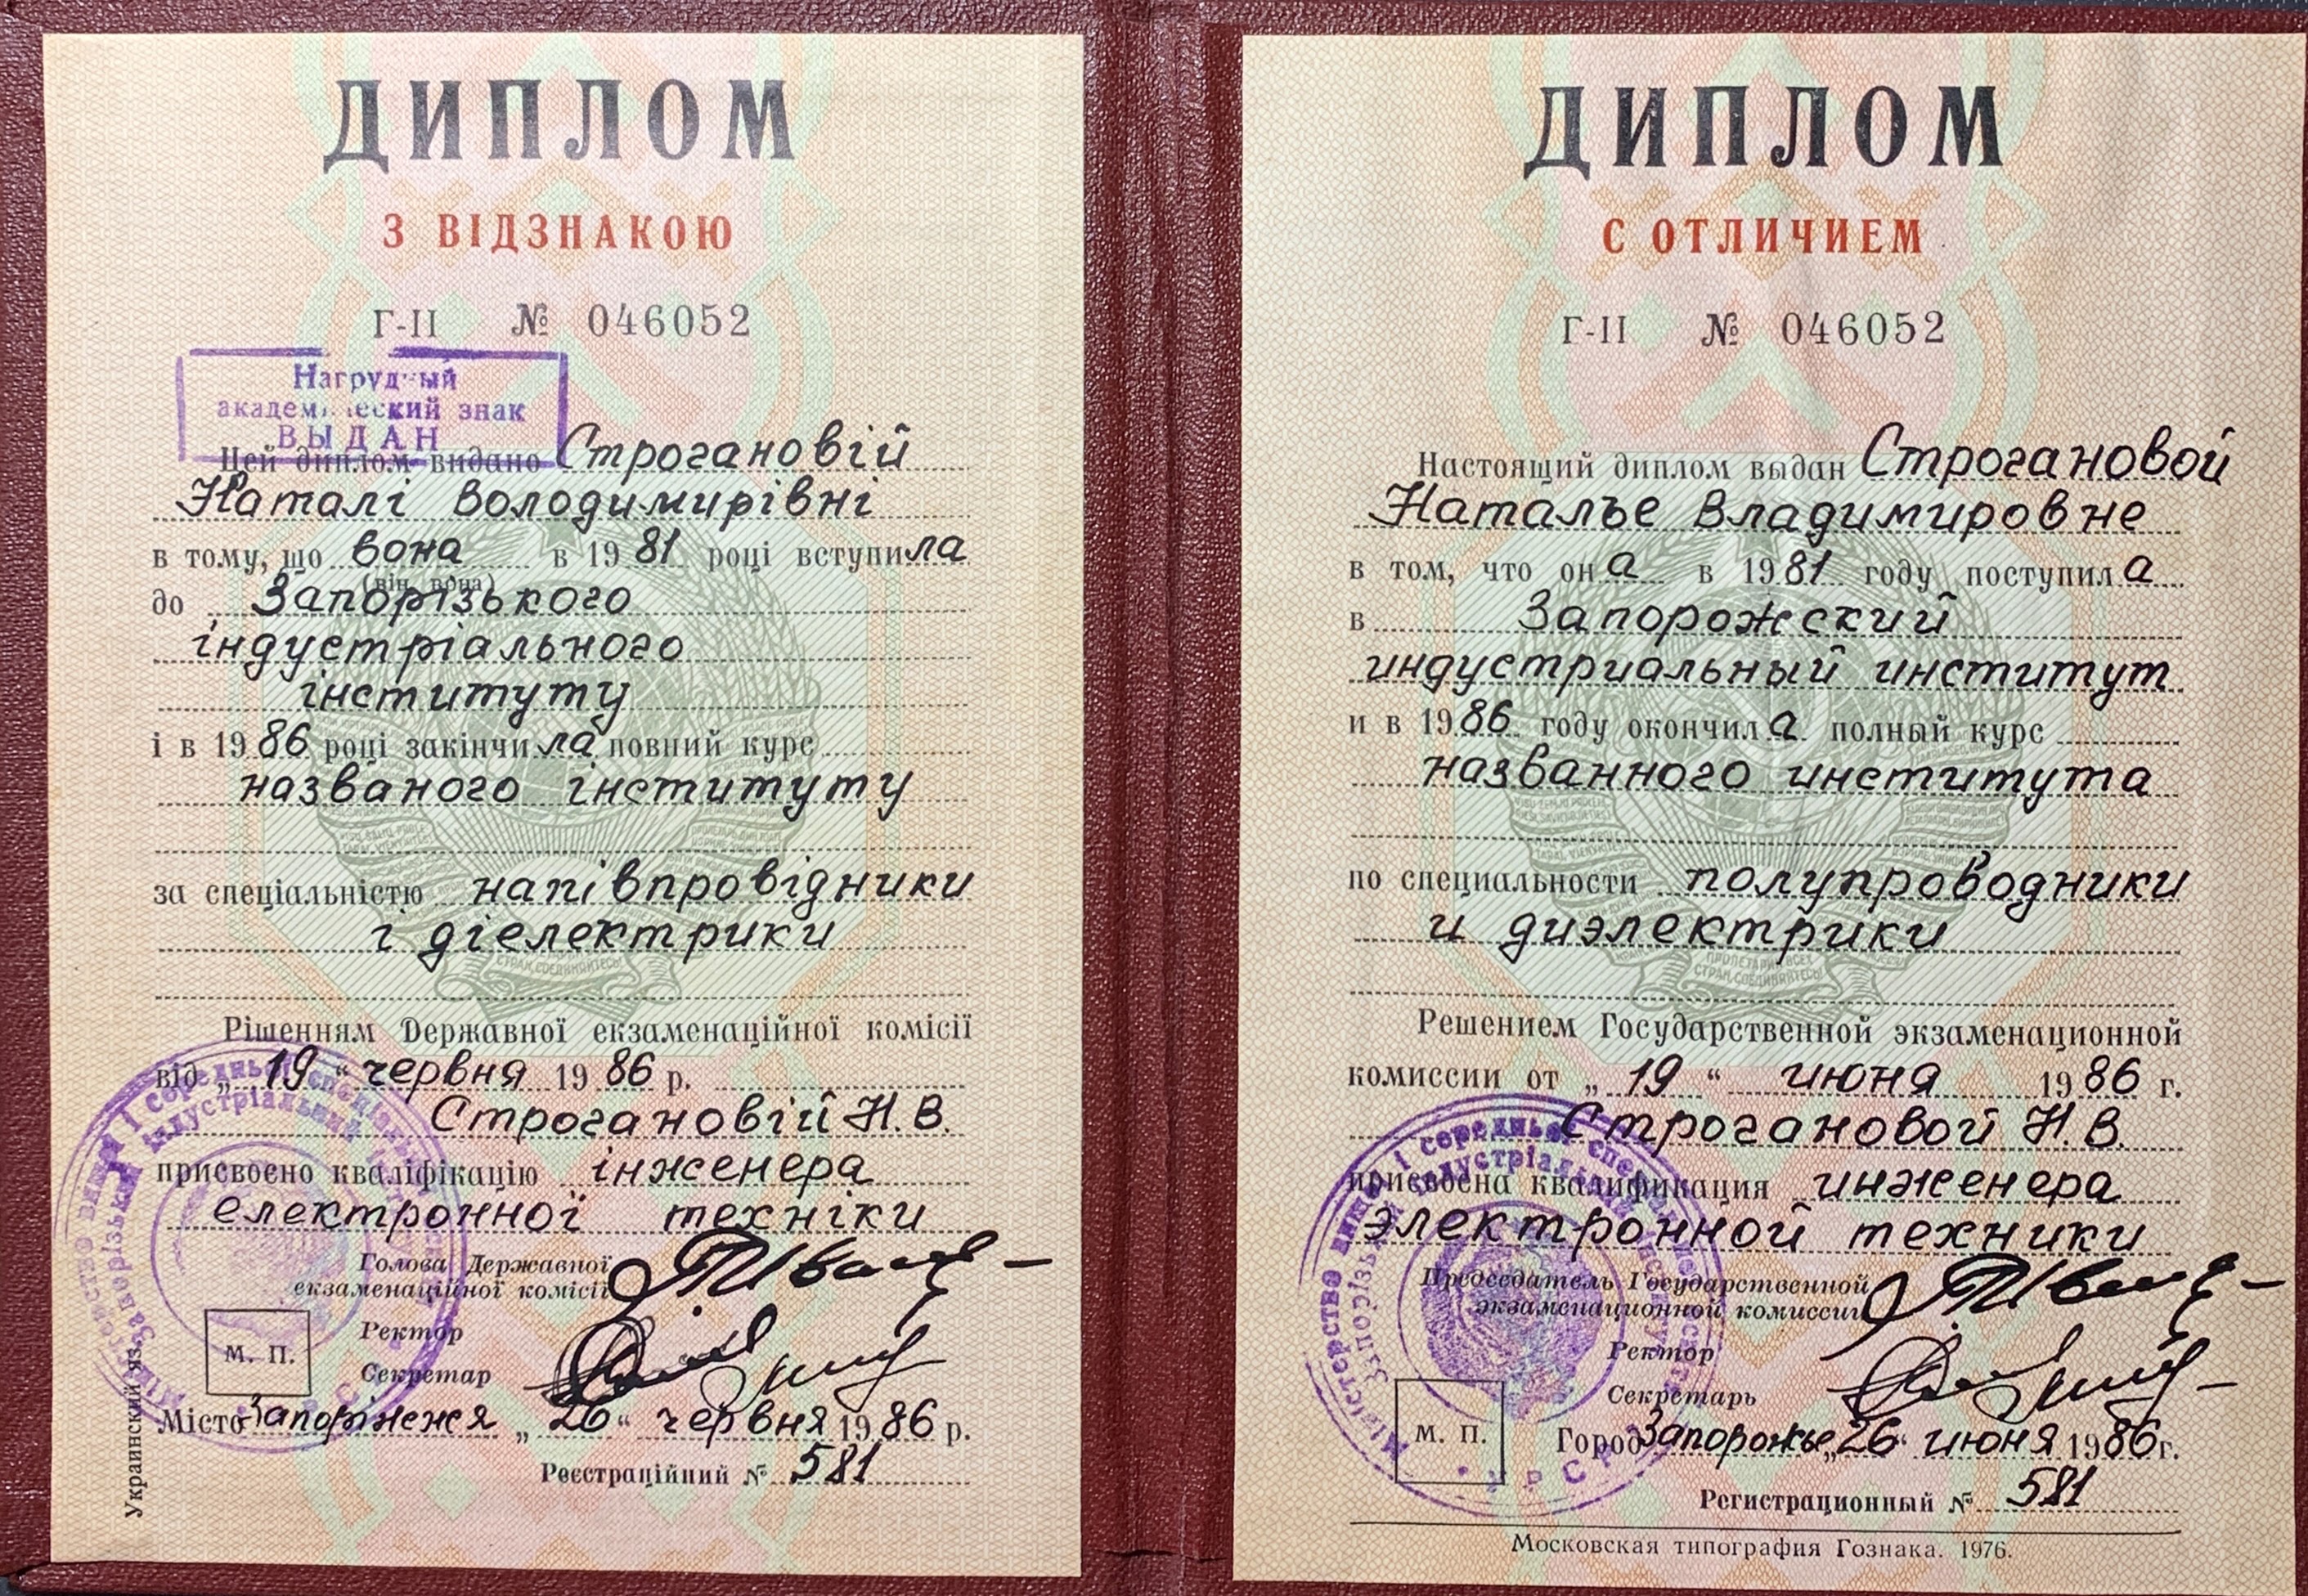 ДИПЛОМ
З ВІДЗНАКОЮ
Г-II № 046052
Нагрудный
академический знак
ВЫДАН
Цей диплом видано Строгановій
Наталі Володимирівні
в тому, що вона в 1981 році вступила
(він, вона)
до Запорізького
індустріального
інституту
і в 1986 році закінчила повний курс
названого інституту
за спеціальністю напівпровідники
і діелектрики
Рішенням Державної екзаменаційної комісії
від „19“ червня 1986 р.
Строгановій Н.В.
присвоєно кваліфікацію інженера
електронної техніки
Голова Державної
екзаменаційної комісії
Ректор
М. П.
Секретар
Місто Запоріжжя „26“ червня 1986 р.
Реєстраційний № 581
Украинский яз.
ДИПЛОМ
С ОТЛИЧИЕМ
Г-II № 046052
Настоящий диплом выдан Строгановой
Наталье Владимировне
в том, что она в 1981 году поступила
в Запорожский
индустриальный институт
и в 1986 году окончила полный курс
названного института
по специальности полупроводники
и диэлектрики
Решением Государственной экзаменационной
комиссии от „19“ июня 1986 г.
Строгановой Н.В.
присвоена квалификация инженера
электронной техники
Председатель Государственной
экзаменационной комиссии
Ректор
Секретарь
М. П.
Город Запорожье „26“ июня 1986 г.
Регистрационный № 581
Московская типография Гознака. 1976.